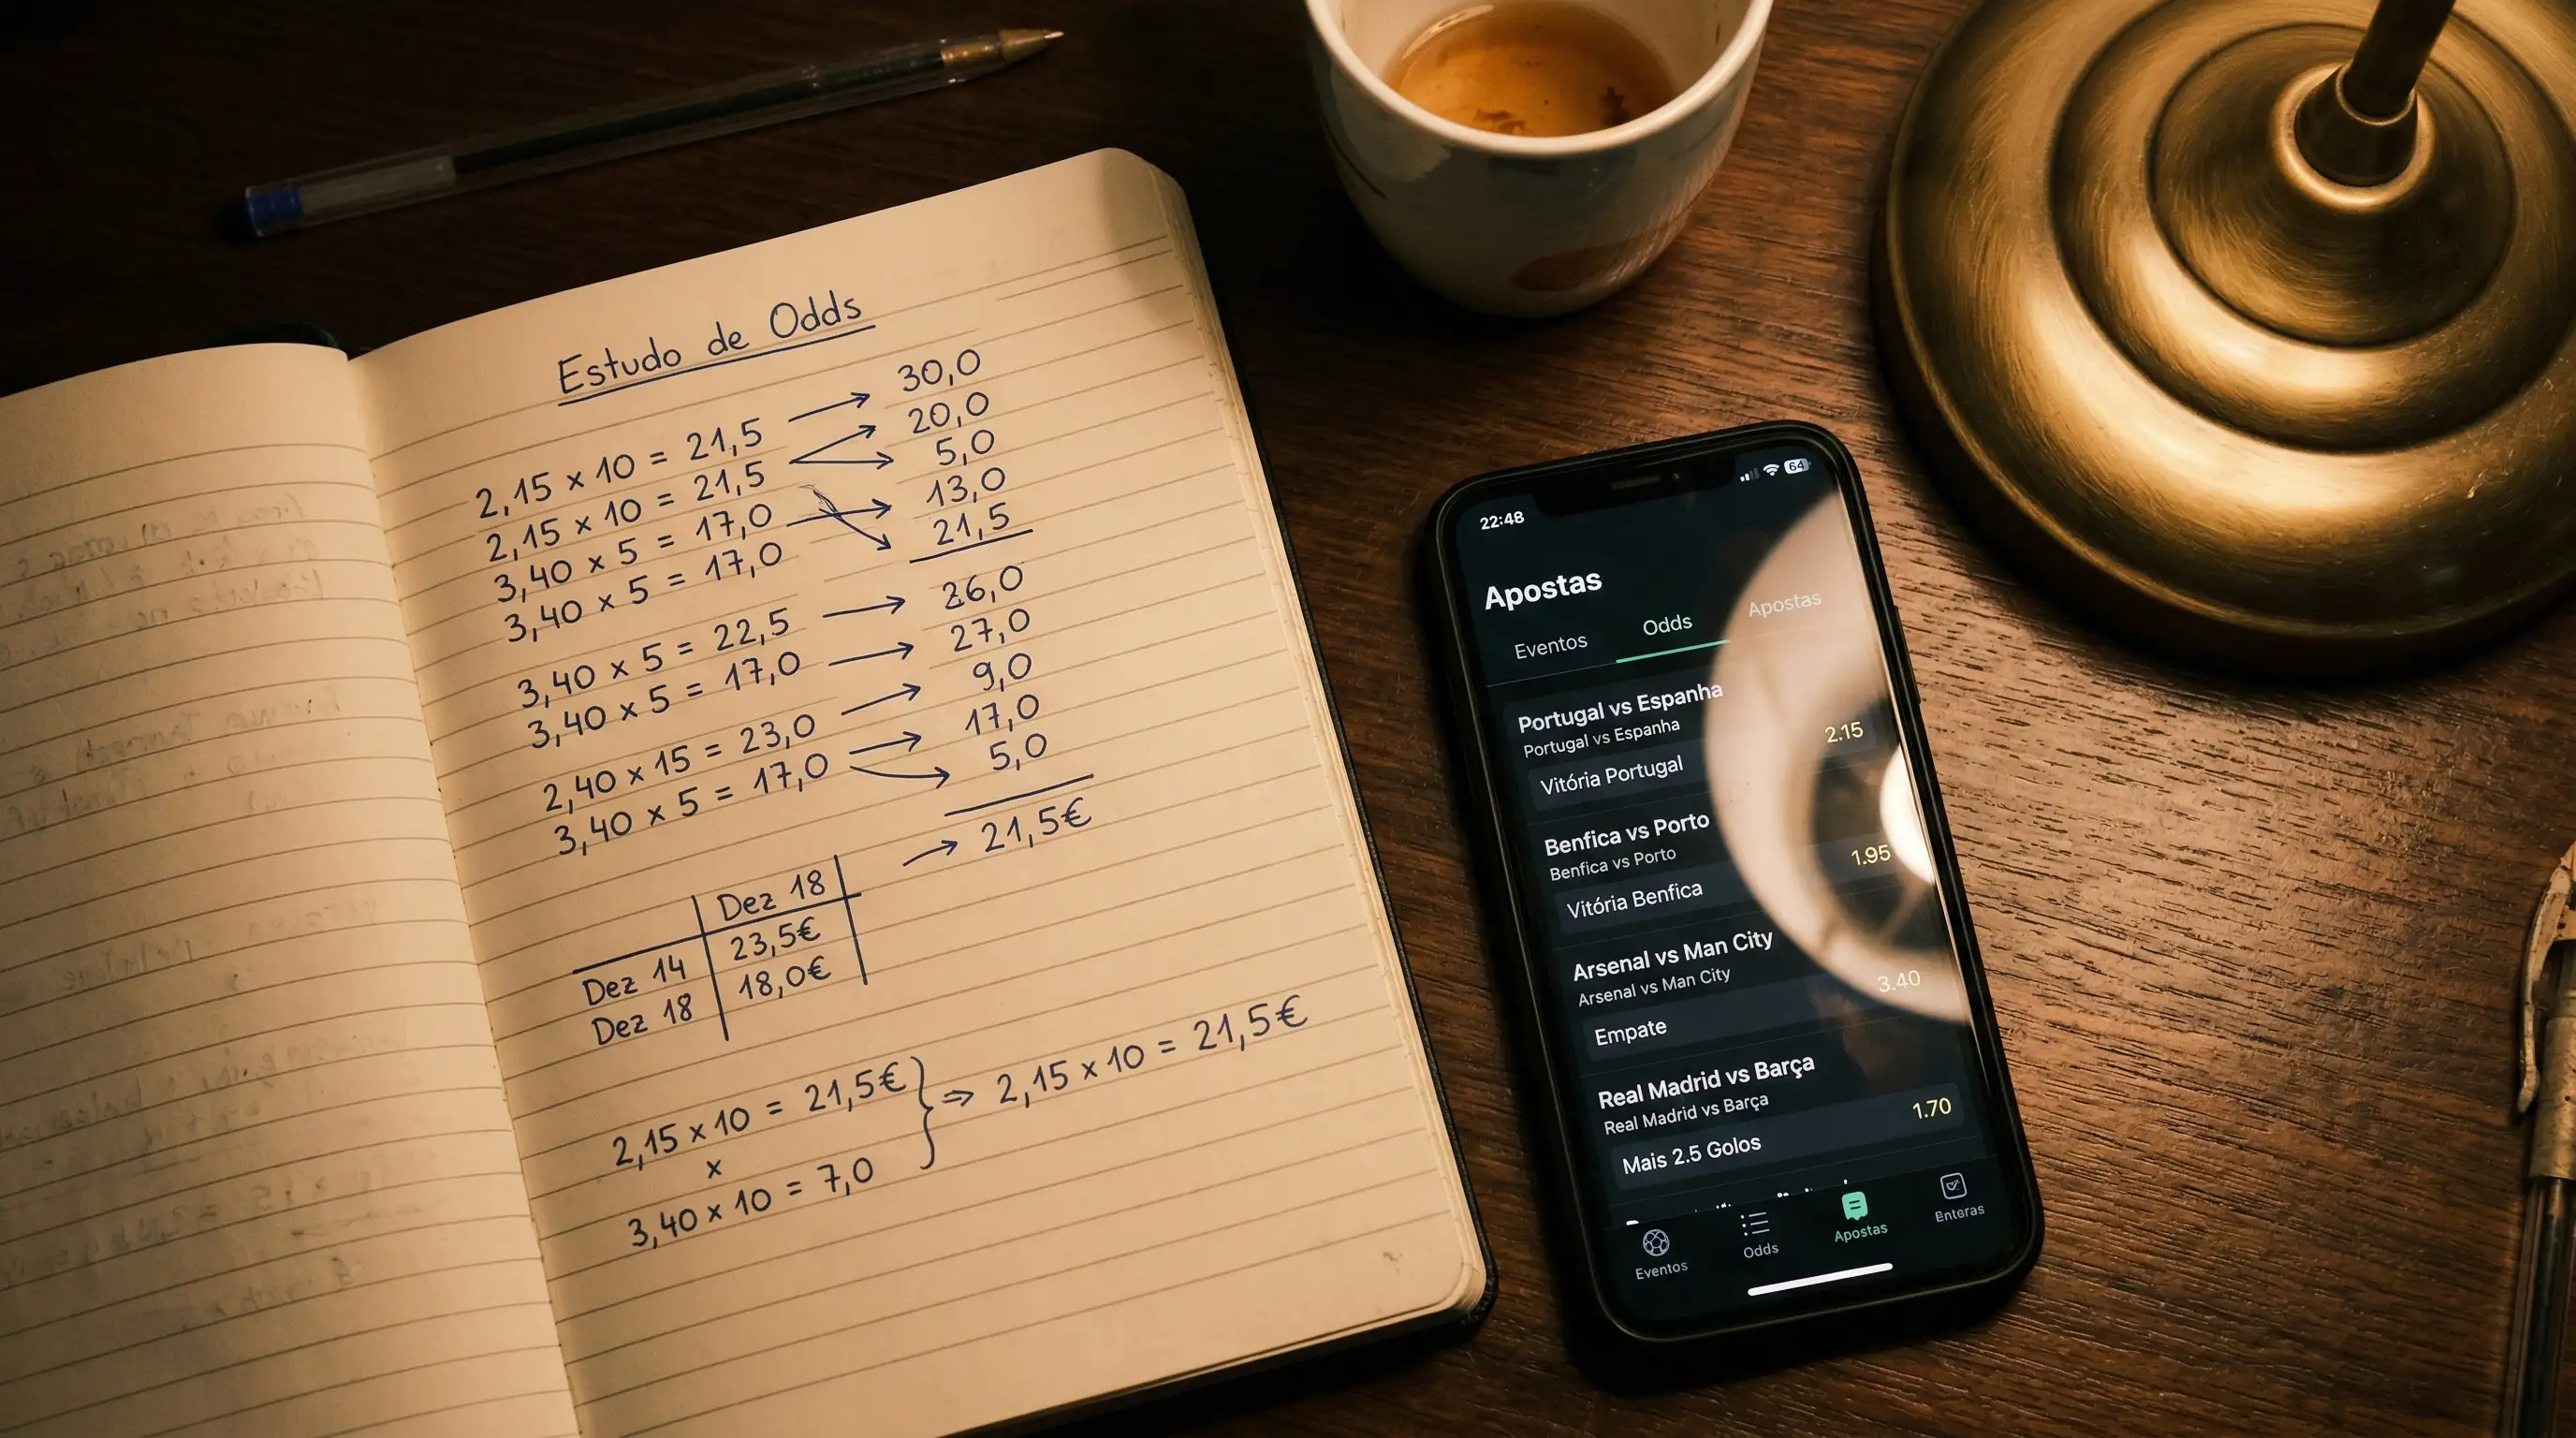 Estudo de Odds
2,15 × 10 = 21,5 → 30,0
2,15 × 10 = 21,5 → 20,0
3,40 × 5 = 17,0 → 5,0
3,40 × 5 = 17,0 → 13,0
21,5
3,40 × 5 = 22,5 → 26,0
3,40 × 5 = 17,0 → 27,0
2,40 × 15 = 23,0 → 9,0
3,40 × 5 = 17,0 → 17,0
5,0
→ 21,5€
Dez 18
Dez 14 23,5€
Dez 18 18,0€
2,15 × 10 = 21,5€ } ⇒ 2,15 × 10 = 21,5€
×
3,40 × 10 = 7,0
22:48
64
Apostas
Eventos Odds Apostas
Portugal vs Espanha
Portugal vs Espanha
Vitória Portugal 2.15
Benfica vs Porto
Benfica vs Porto
Vitória Benfica 1.95
Arsenal vs Man City
Arsenal vs Man City
Empate 3.40
Real Madrid vs Barça
Real Madrid vs Barça
Mais 2.5 Golos 1.70
Eventos Odds Apostas Enteras